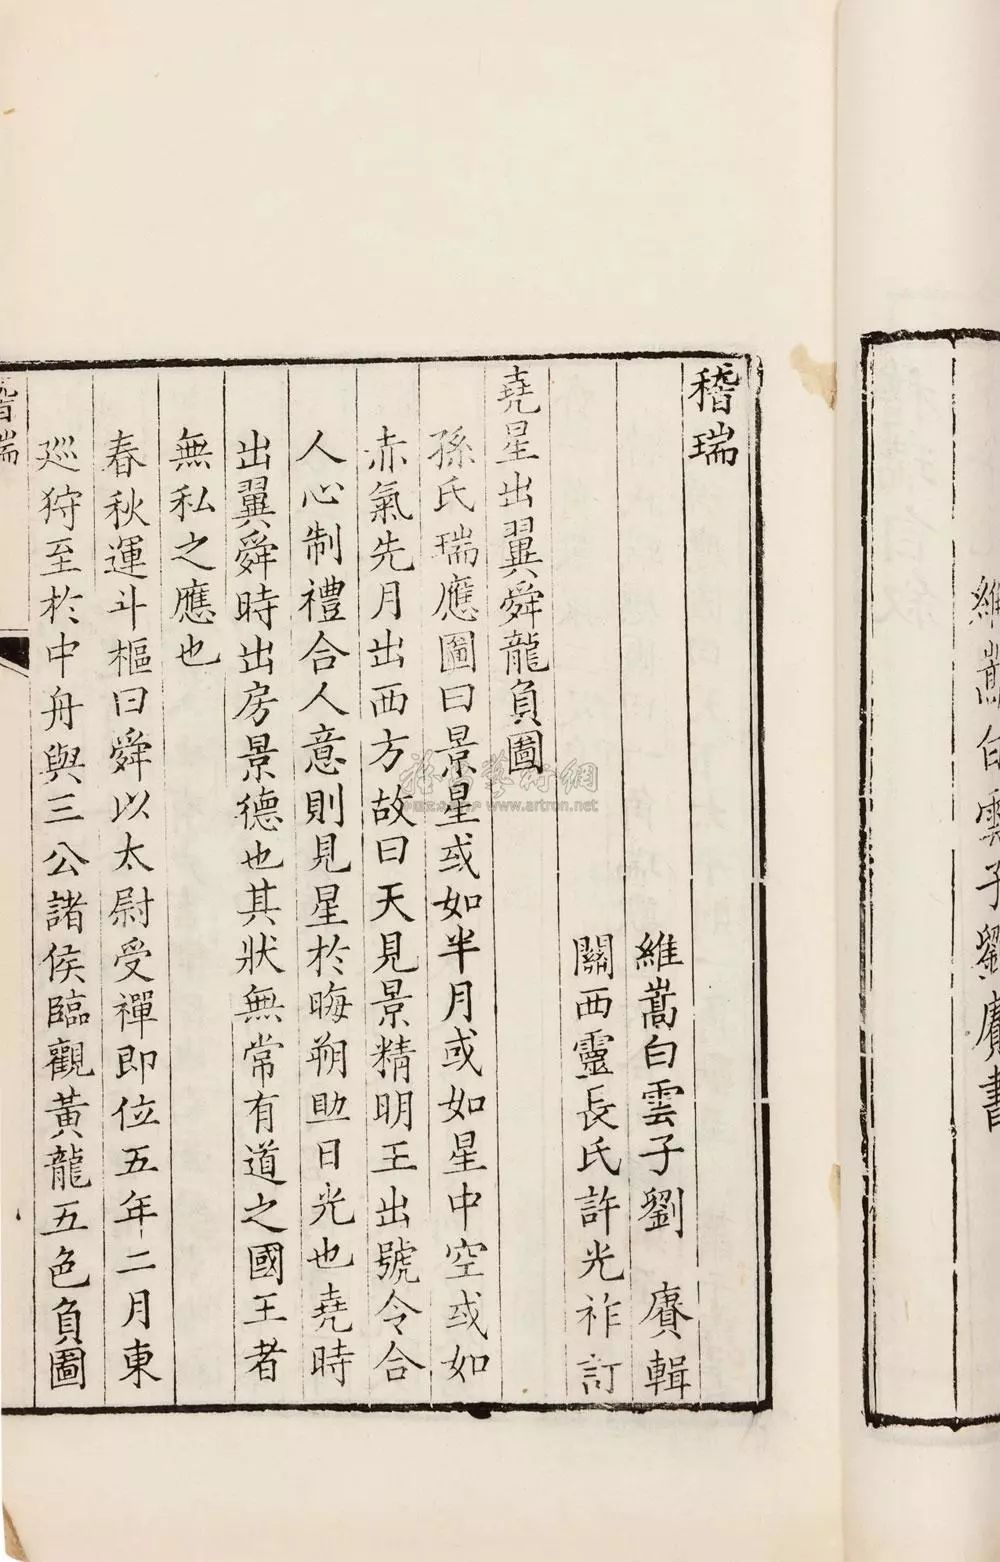 維嵩白雲子劉賡書
稽瑞
維嵩白雲子劉　賡輯
關西靈長氏許光祚訂
堯星出翼舜龍負圖
孫氏瑞應圖曰景星或如半月或如星中空或如
赤氣先月出西方故曰天見景精明王出號令合
人心制禮合人意則見星於晦朔助日光也堯時
出翼舜時出房景德也其狀無常有道之國王者
無私之應也
春秋運斗樞曰舜以太尉受禪即位五年二月東
巡狩至於中舟與三公諸侯臨觀黃龍五色負圖
稽瑞
www.artron.net